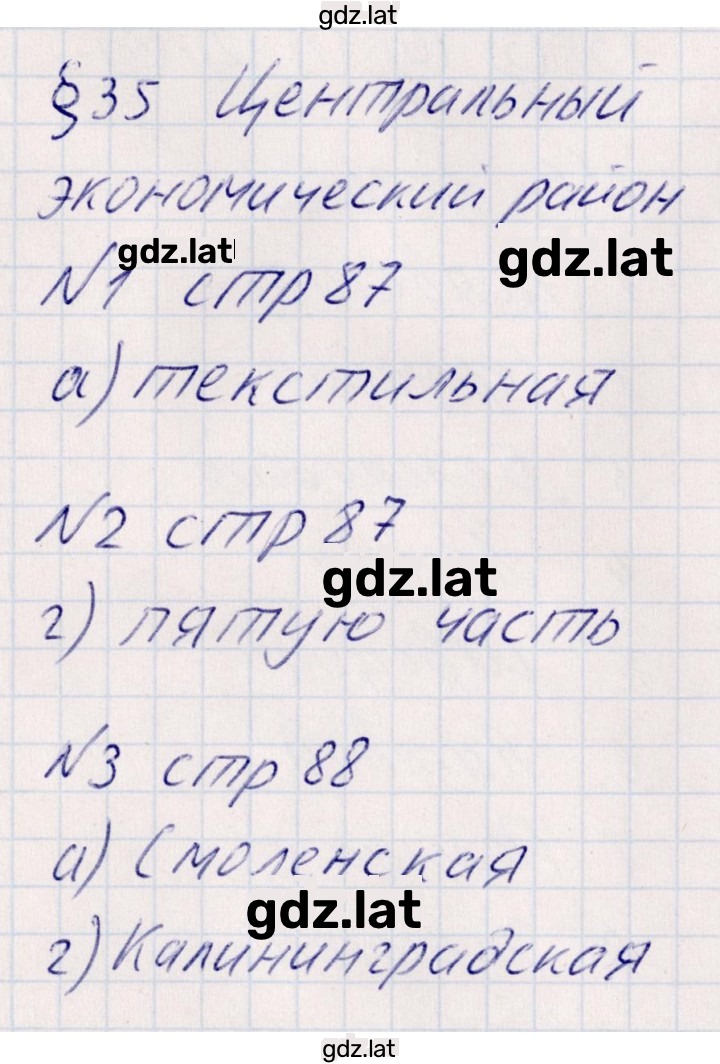 gdz.lat
§35 Центральный
экономический район
gdz.lat gdz.lat
№1 стр 87
а) текстильная
№2 стр 87
gdz.lat
г) пятую часть
№3 стр 88
а) Смоленская
gdz.lat
г) Калининградская
gdz.lat